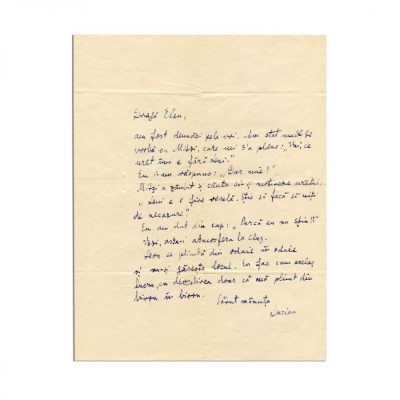 Dragă Elen,
am fost deunăzi pe la voi. Am stat mult de
vorbă cu Mitzi, care mi s'a plâns: "Vai ce
urât îmi e fără Leni."
Eu i-am răspuns: "Dar mie!"
Mitzi a zâmbit și căuta să-și motiveze urâtul:
"Leni e o fire veselă. Știe să facă să uiți
de necazuri."
Eu am dat din cap: "Parcă eu nu știu!?"
Vezi, asta-i atmosfera la Cluj.
se plimbă din odaie în odaie
și nu-și găsește locul. Eu fac cam același
lucru, cu deosebirea doar că mă plimb din
birou în birou.
Sărut mânuța
Lucian